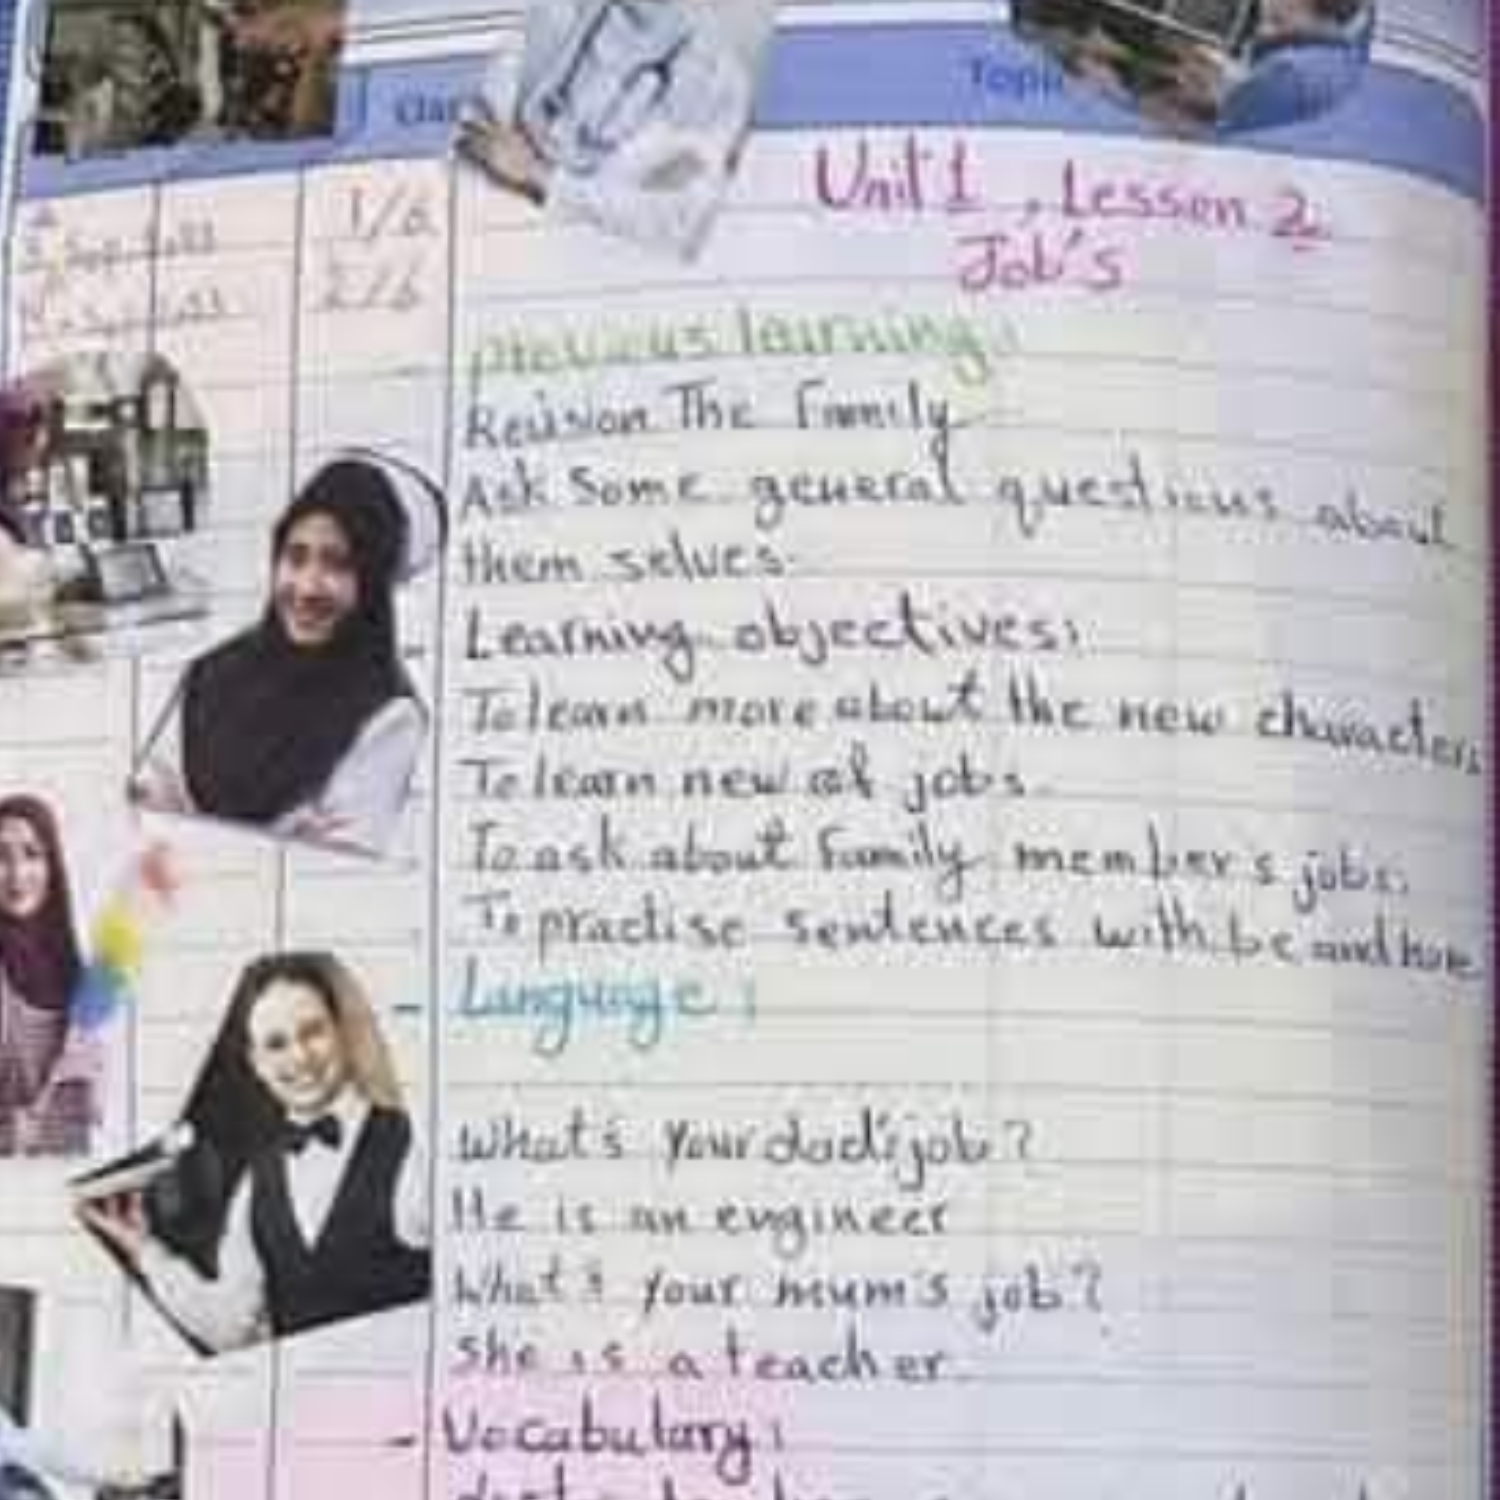 Topic
Unit 1, Lesson 2
Job's
1/6
2/6
- Previous learning:
Revision The Family
Ask Some general questions about
them selves.
- Learning objectives:
To learn more about the new characters
To learn new of jobs.
To ask about Family member's jobs.
To practise sentences with be and have
- Language:
What's your dad's job?
He is an engineer
What's your mum's job?
She is a teacher.
- Vocabulary: